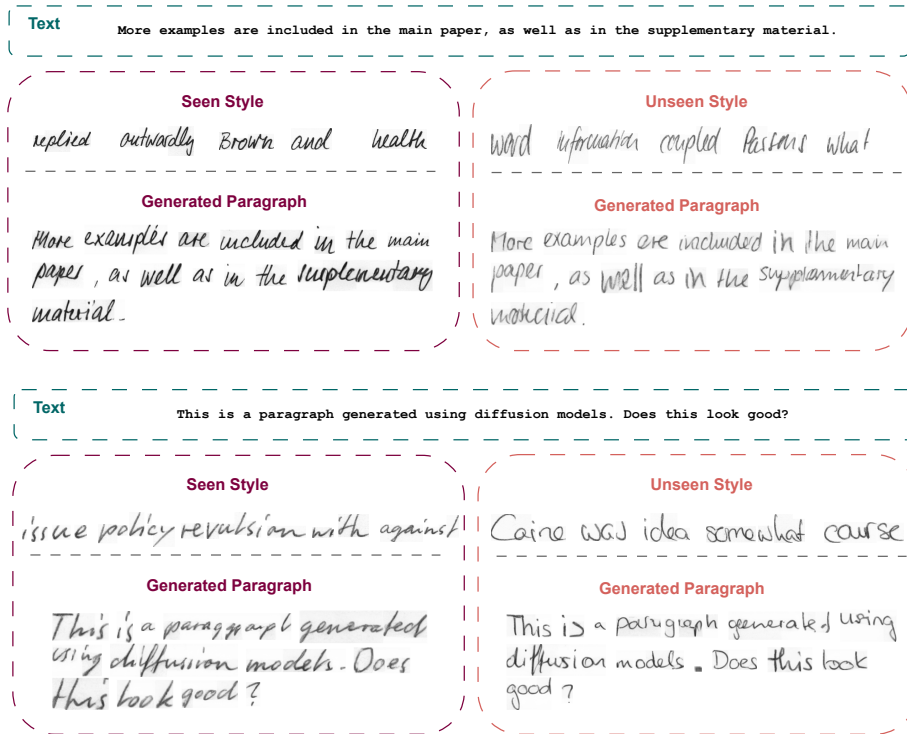 Text
More examples are included in the main paper, as well as in the supplementary material.
Seen Style
replied outwardly Brown and health
Generated Paragraph
More examples are included in the main
paper, as well as in the suplementary
material.
Unseen Style
word information coupled Parsons what
Generated Paragraph
More examples ere inachuded in the main
paper, as well as in the Supplamentary
Text
This is a paragraph generated using diffusion models. Does this look good?
Seen Style
issue policy revulsion with against
Generated Paragraph
This is a generated
using diffusion models. Does
this look good?
Unseen Style
Caine was idea somewhat course
Generated Paragraph
This is a parugraph generated using
diffusion models. Does this look
good?